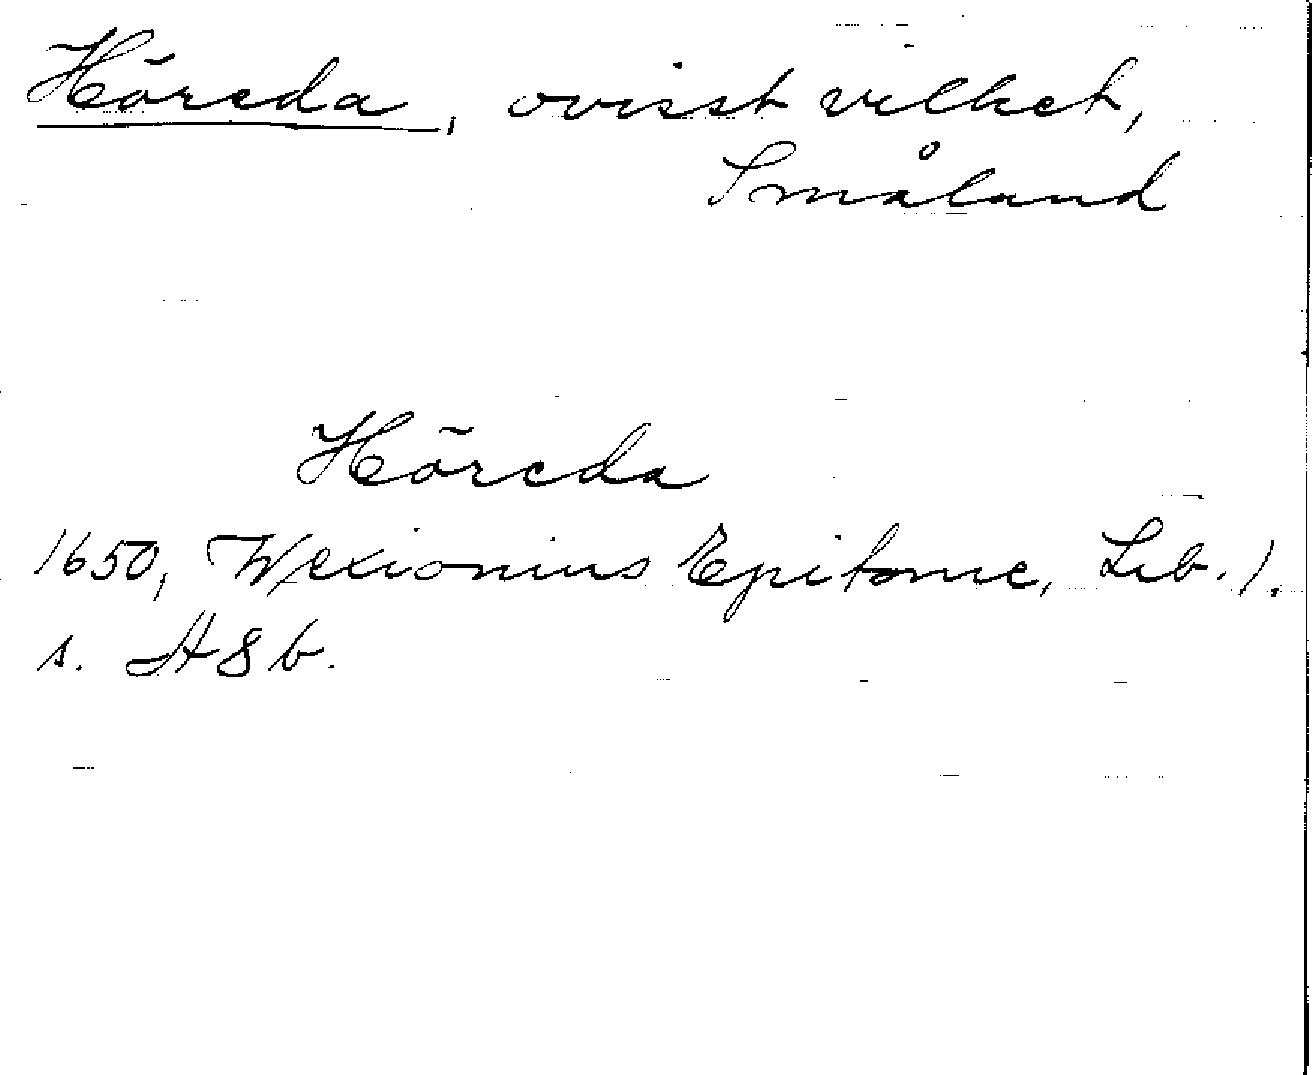 Höreda, ovisst vilket,
Småland
Höreda
1650, Wexionius Epitome, Lib. 1.
s. H8b.